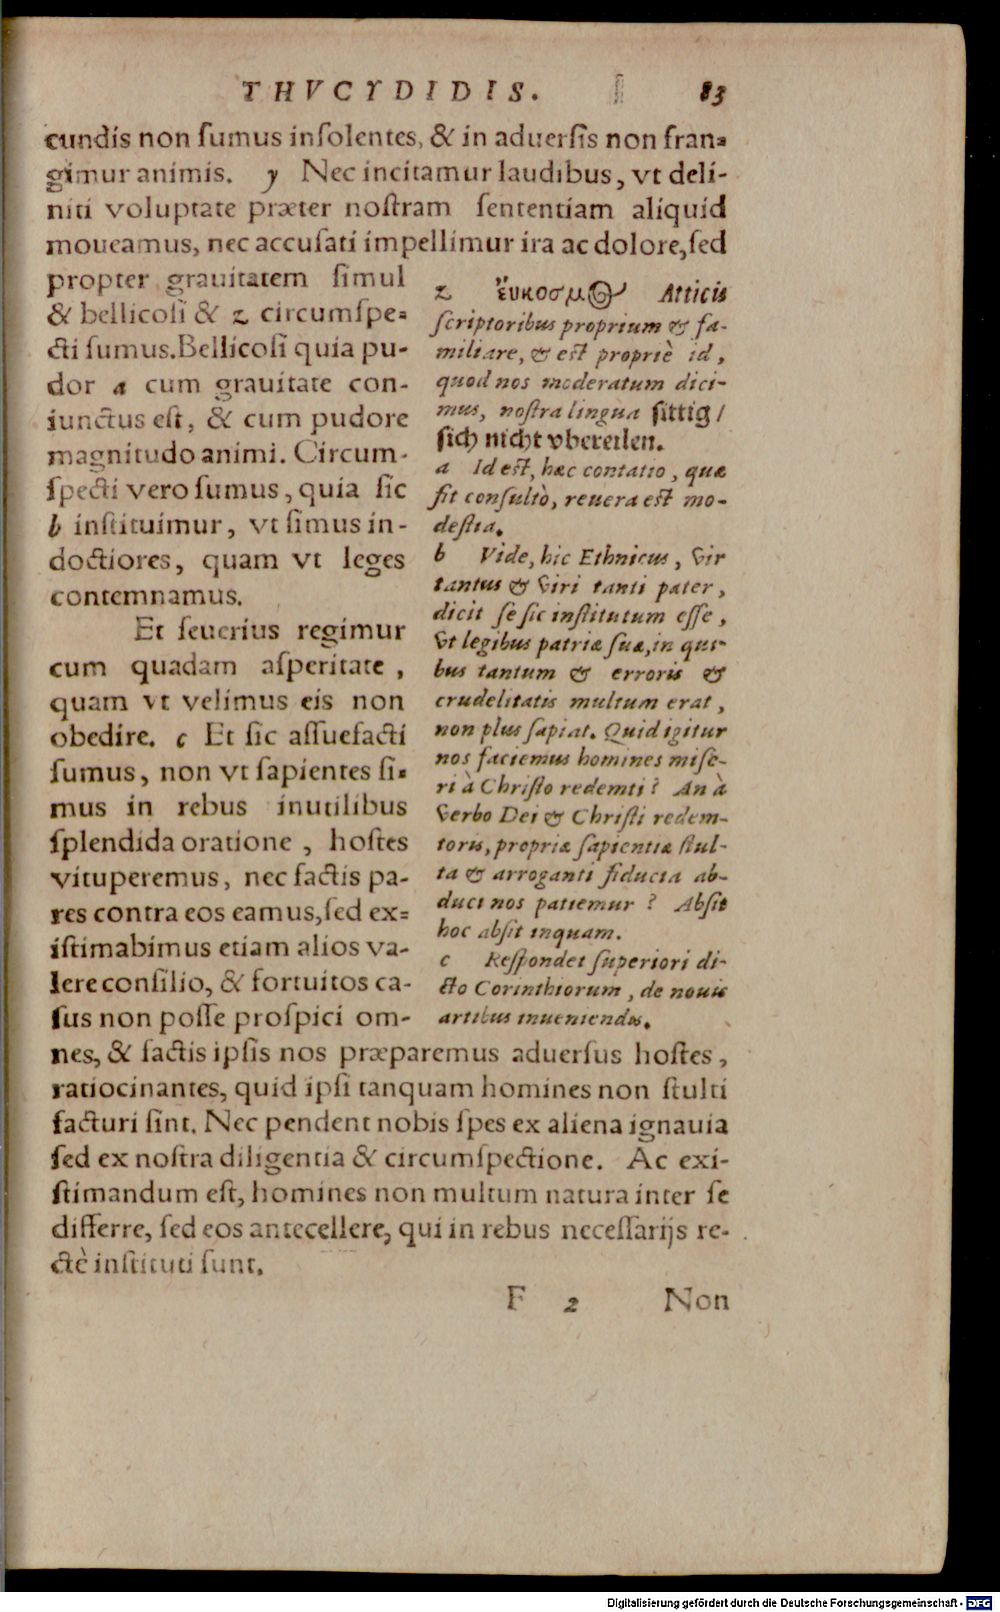 THVCYDIDIS. 83
cundis non ſumus inſolentes, & in aduerſis non fran-
gimur animis. y Nec incitamur laudibus, vt deli-
niti voluptate præter noſtram ſententiam aliquid
moueamus, nec accuſati impellimur ira ac dolore, ſed
propter grauitatem ſimul
& bellicoſi & z circumſpe-
cti ſumus. Bellicoſi quia pu-
dor a cum grauitate con-
iunctus eſt, & cum pudore
magnitudo animi. Circum-
ſpecti vero ſumus, quia ſic
b inſtituimur, vt ſimus in-
doctiores, quam vt leges
contemnamus.
Et ſeuerius regimur
cum quadam aſperitate,
quam vt velimus eis non
obedire. c Et ſic aſſuefacti
ſumus, non vt ſapientes ſi-
mus in rebus inutilibus
ſplendida oratione, hoſtes
vituperemus, nec factis pa-
res contra eos eamus, ſed ex-
iſtimabimus etiam alios va-
lere conſilio, & fortuitos ca-
ſus non poſſe proſpici om-
z ἔυκοσμος Atticis
ſcriptoribus proprium & fa-
miliare, & eſt propriè id,
quod nos moderatum dici-
mus, noſtra lingua ſittig/
ſich nicht vbereilen.
a Id eſt, hæc contatio, quæ
fit conſultò, reuera eſt mo-
deſtia.
b Vide, hic Ethnicus, vir
tantus & viri tanti pater,
dicit ſe ſic inſtitutum eſſe,
vt legibus patriæ ſuæ, in qui-
bus tantum & erroris &
crudelitatis multum erat,
non plus ſapiat. Quid igitur
nos faciemus homines miſe-
ri à Chriſto redemti? An à
verbo Dei & Chriſti redem-
toris, propriæ ſapientiæ ſtul-
ta & arroganti fiducia ab-
duci nos patiemur? Abſit
hoc abſit inquam.
c Reſpondet ſuperiori di-
cto Corinthiorum, de nouis
artibus inueniendis.
nes, & factis ipſis nos præparemus aduerſus hoſtes,
ratiocinantes, quid ipſi tanquam homines non ſtulti
facturi ſint. Nec pendent nobis ſpes ex aliena ignauia
ſed ex noſtra diligentia & circumſpectione. Ac exi-
ſtimandum eſt, homines non multum natura inter ſe
differre, ſed eos antecellere, qui in rebus neceſſarijs re-
ctè inſtituti ſunt.
F 2 Non
Digitalisierung gefördert durch die Deutsche Forschungsgemeinschaft - DFG